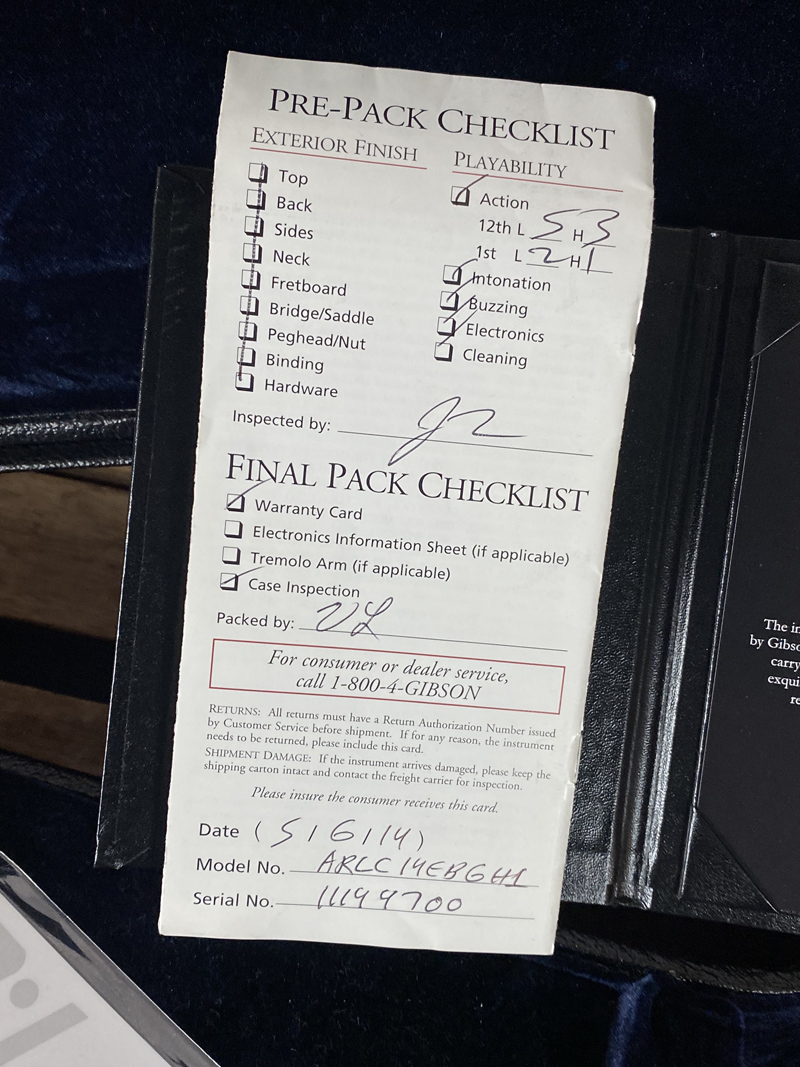 PRE-PACK CHECKLIST
EXTERIOR FINISH
Top
Back
Sides
Neck
Fretboard
Bridge/Saddle
Peghead/Nut
Binding
Hardware
PLAYABILITY
Action
12th L 5 H 3
1st L 2 H 1
Intonation
Buzzing
Electronics
Cleaning
Inspected by:
FINAL PACK CHECKLIST
Warranty Card
Electronics Information Sheet (if applicable)
Tremolo Arm (if applicable)
Case Inspection
Packed by: VL
For consumer or dealer service,
call 1-800-4-GIBSON
RETURNS: All returns must have a Return Authorization Number issued
by Customer Service before shipment. If for any reason, the instrument
needs to be returned, please include this card.
SHIPMENT DAMAGE: If the instrument arrives damaged, please keep the
shipping carton intact and contact the freight carrier for inspection.
Please insure the consumer receives this card.
Date (5/6/14)
Model No. ARLC14EBGH1
Serial No. 11149700
The in
by Gibso
carry
exqui
re